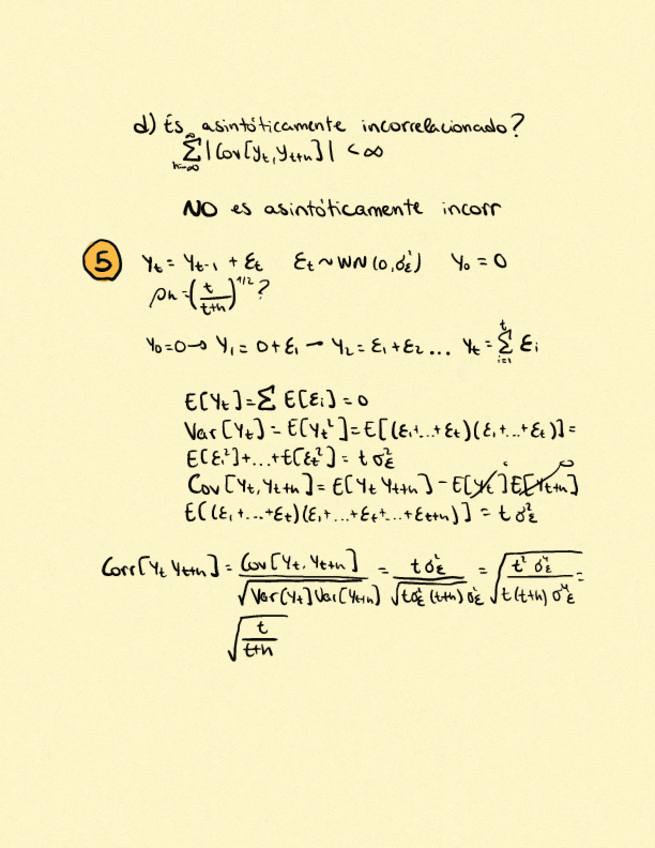 d) És asintóticamente incorrelacionado?
∞
Σ |Cov[Yt,Yt+h]| < ∞
h=-∞
NO es asintóticamente incorr
5 Yt = Yt-1 + εt εt ~ WN(0,σ²ε) Y0 = 0
ρh = (t/(t+h))^1/2?
Y0=0 → Y1 = 0+ε1 → Y2 = ε1+ε2 ... Yt = Σ_{i=1}^{t} εi
E[Yt] = Σ E[εi] = 0
Var[Yt] = E[Yt²] = E[(ε1+...+εt)(ε1+...+εt)] =
E[ε1²]+...+E[εt²] = tσ²ε
Cov[Yt,Yt+h] = E[Yt Yt+h] - E[Yt]E[Yt+h]
E[(ε1+...+εt)(ε1+...+εt+...+εt+h)] = tσ²ε
Corr[Yt Yt+h] = Cov[Yt,Yt+h] / √(Var[Yt]Var[Yt+h]) = tσ²ε / √(tσ²ε(t+h)σ²ε) = √(t²σ⁴ε / t(t+h)σ⁴ε) =
√(t/(t+h))